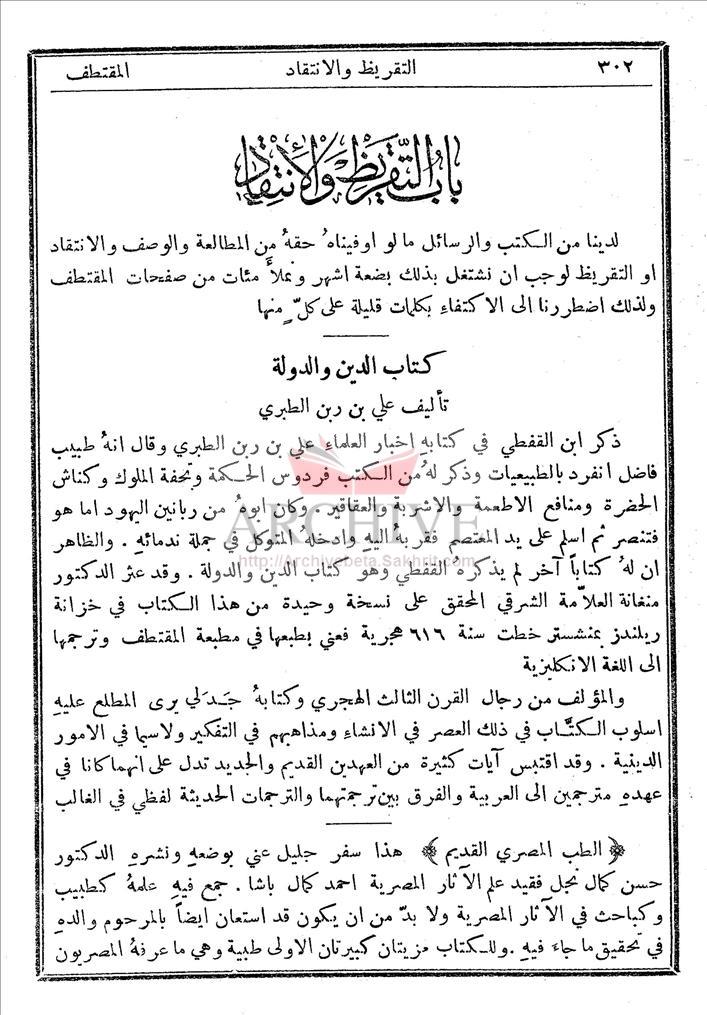 ٣٠٢ التقريظ والانتقاد المقتطف
باب التقريظ والانتقاد
لدينا من الكتب والرسائل ما لو اوفيناه حقه من المطالعة والوصف والانتقاد
او التقريظ لوجب ان نشتغل بذلك بضعة اشهر ونملأ مئات من صفحات المقتطف
ولذلك اضطررنا الى الاكتفاء بكلمات قليلة على كلٍّ منها
كتاب الدين والدولة
تأليف علي بن ربن الطبري
ذكر ابن القفطي في كتابهِ اخبار العلماء علي بن ربن الطبري وقال انهُ طبيب
فاضل انفرد بالطبيعيات وذكر لهُ من الكتب فردوس الحكمة وتحفة الملوك وكناش
الحضرة ومنافع الاطعمة والاشربة والعقاقير . وكان ابوهُ من ربانين اليهود اما هو
فتنصر ثم اسلم على يد المعتصم فقربهُ اليهِ وادخلهُ المتوكل في جملة ندمائهِ . والظاهر
ان لهُ كتاباً آخر لم يذكره القفطي وهو كتاب الدين والدولة . وقد عثر الدكتور
منغانة العلاّمة الشرقي المحقق على نسخة وحيدة من هذا الكتاب في خزانة
ريلندز بمنشستر خطت سنة ٦١٦ هجرية فعني بطبعها في مطبعة المقتطف وترجمها
الى اللغة الانكليزية
والمؤلف من رجال القرن الثالث الهجري وكتابهُ جَدَلي يرى المطلع عليهِ
اسلوب الكتَّاب في ذلك العصر في الانشاء ومذاهبهم في التفكير ولاسيما في الامور
الدينية . وقد اقتبس آيات كثيرة من العهدين القديم والجديد تدل على انهما كانا في
عهدهِ مترجمين الى العربية والفرق بين ترجمتهما والترجمات الحديثة لفظي في الغالب
﴿ الطب المصري القديم ﴾ هذا سفر جليل عني بوضعهِ ونشرهِ الدكتور
حسن كمال نجل فقيد علم الآثار المصرية احمد كمال باشا . جمع فيهِ علمهُ كطبيب
وكباحث في الآثار المصرية ولا بدّ من ان يكون قد استعان ايضاً بالمرحوم والدهِ
في تحقيق ما جاء فيهِ . وللكتاب مزيتان كبيرتان الاولى طبية وهي ما عرفهُ المصريون
ARCHIVE
http://Archivebeta.Sakhrit.com